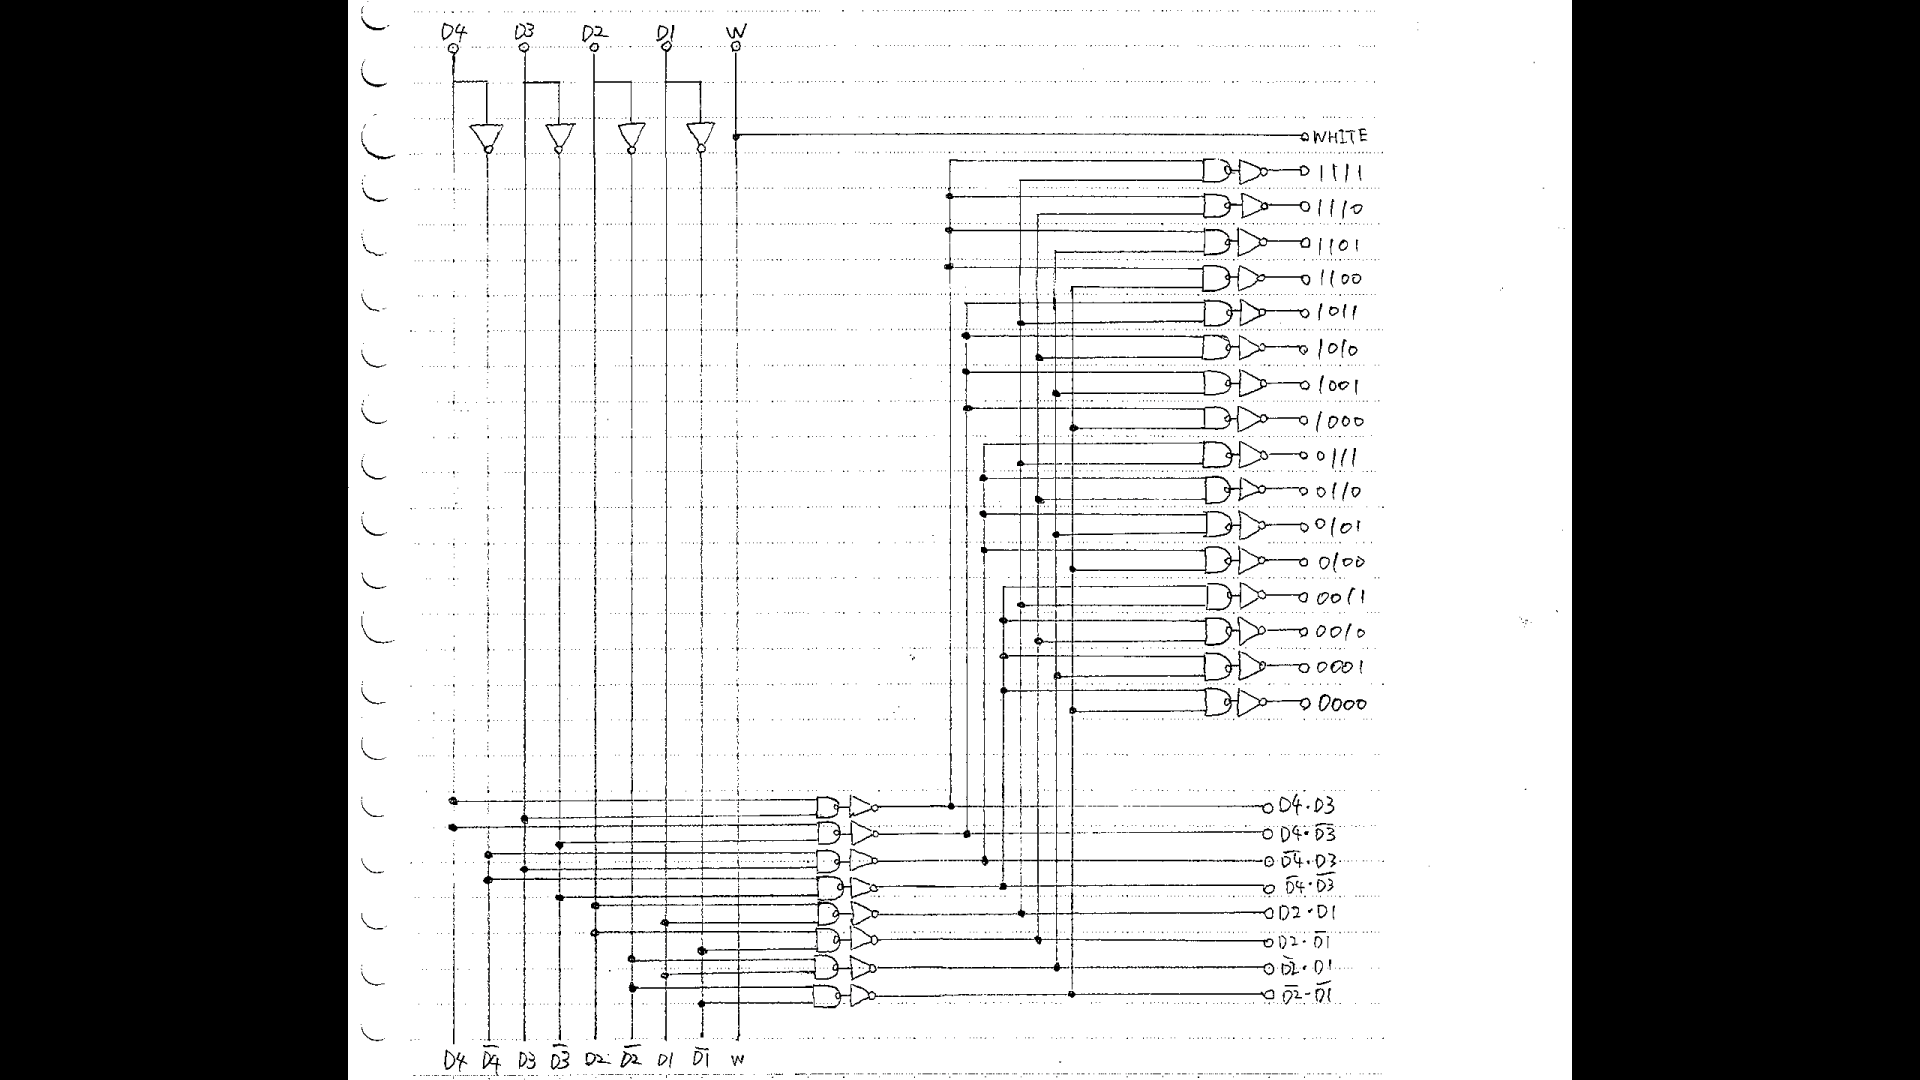 D4 D3 D2 D1 W
WHITE
1111
1110
1101
1100
1011
1010
1001
1000
0111
0110
0101
0100
0011
0010
0001
0000
D4·D3
D4·D̅3̅
D̅4̅·D3
D̅4̅·D̅3̅
D2·D1
D2·D̅1̅
D̅2̅·D1
D̅2̅·D̅1̅
D4 D̅4̅ D3 D̅3̅ D2 D̅2̅ D1 D̅1̅ W